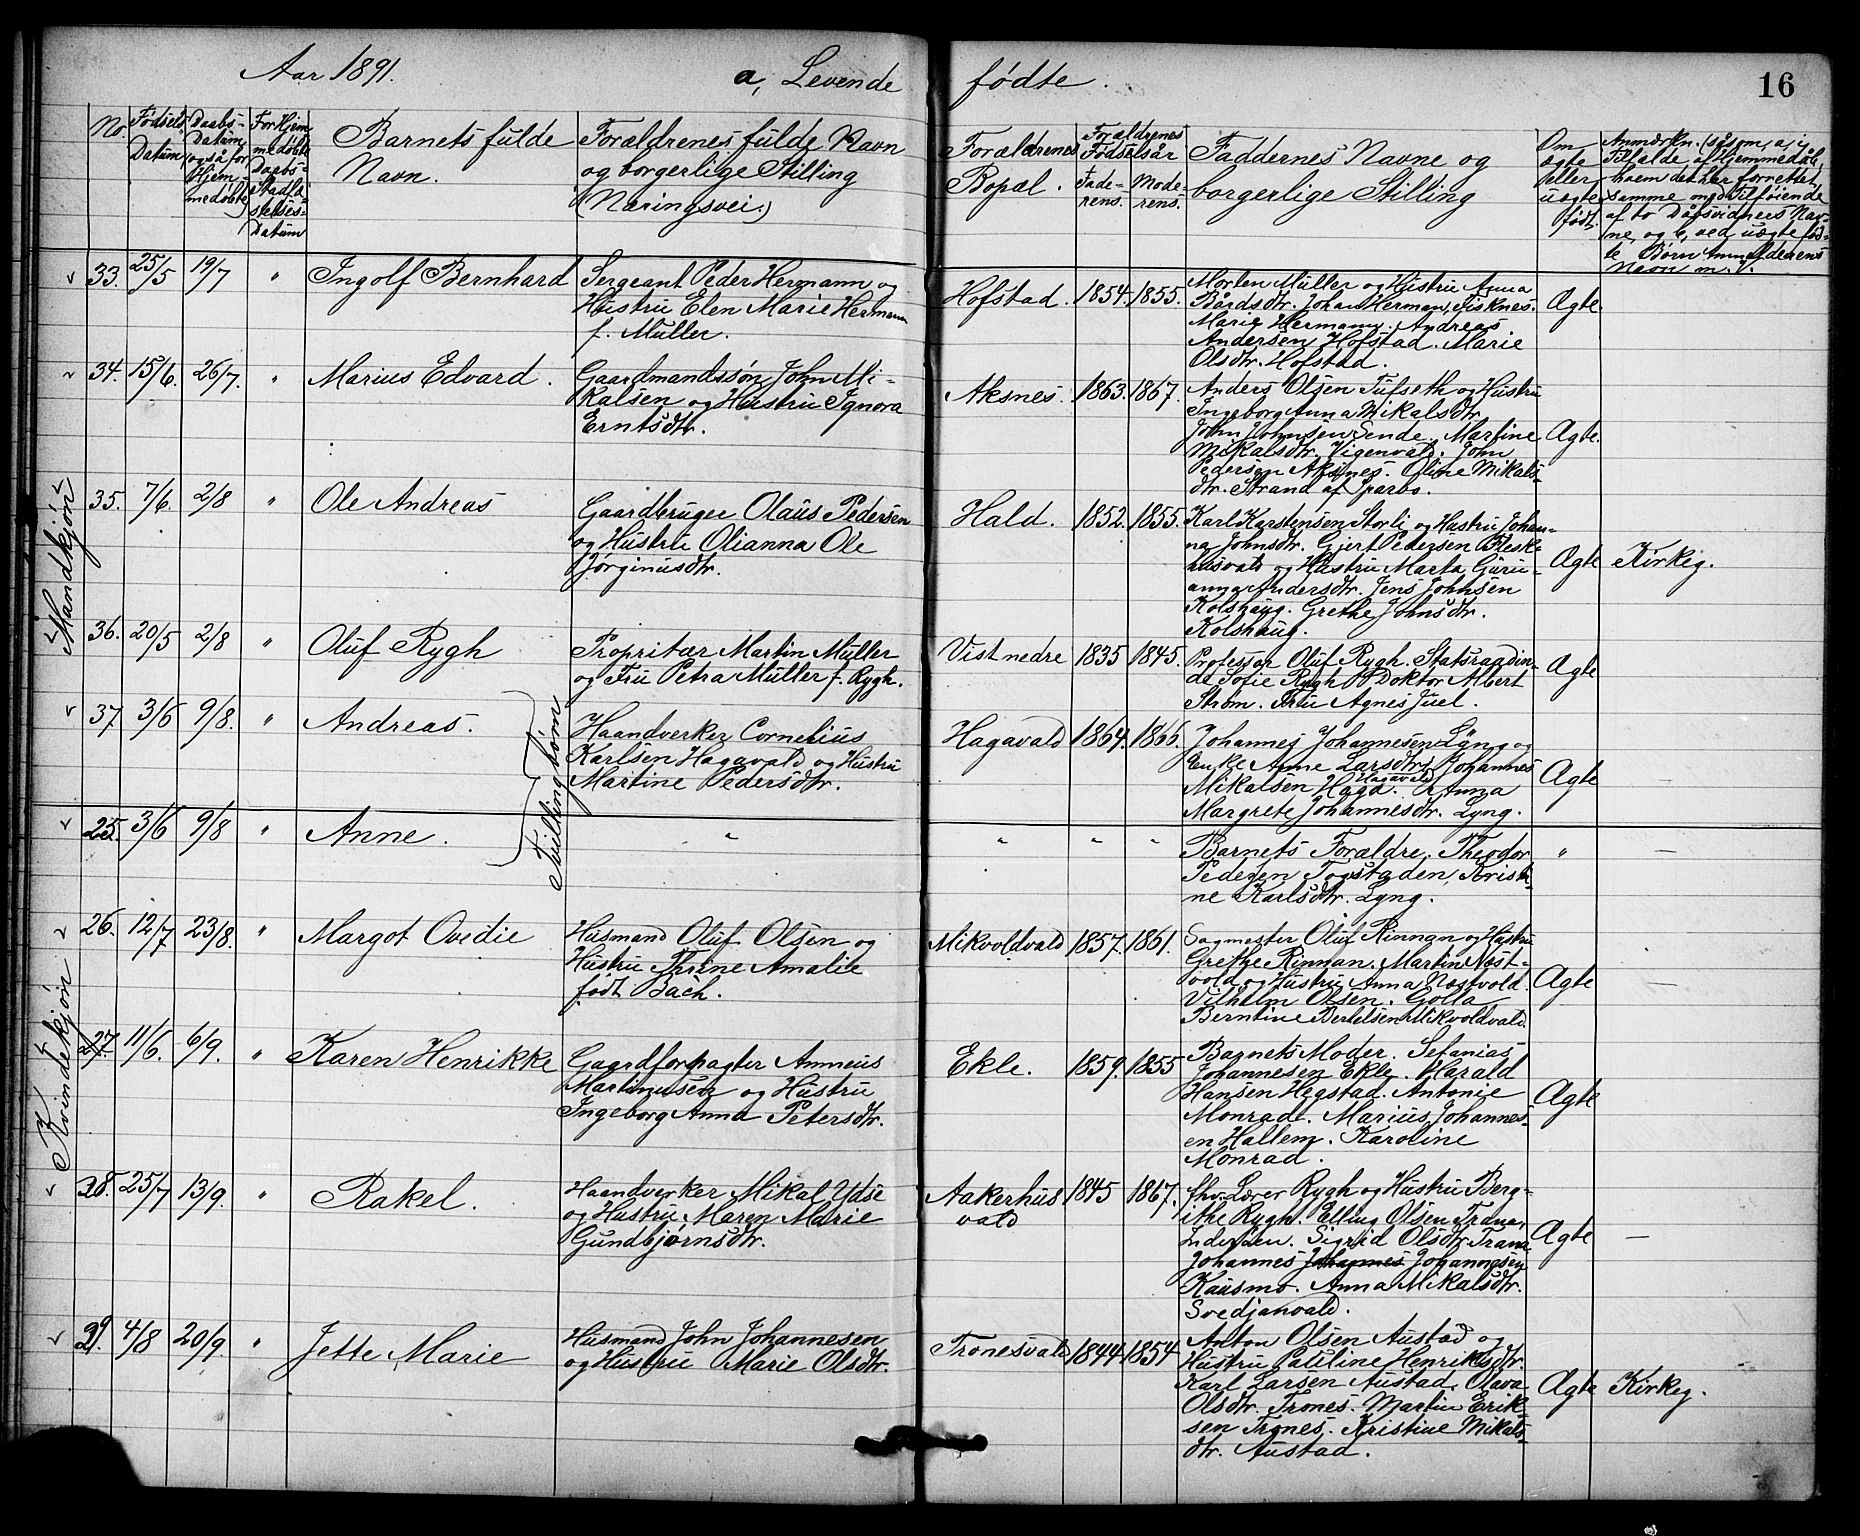 Aar 1891. a, Levende fødte. 16
No.
Fødsels
Datum
Daabs-
Datum
(også for
Hjem-
medøbte)
For Hjem
medøbte
Daabs-
Stadfæ
stelses-
Datum
Barnets fulde
Navn.
Forældrenes fulde Navn
og borgerlige Stilling
(Næringsvei.)
Forældrenes
Bopæl.
Forældrenes
Fødselsår
Fade-
rens.
Mode-
rens.
Faddernes Navne og
borgerlige Stilling
Om
ægte
eller
uægte
født.
Anmærkn. (såsom, a, i
Tilfælde af Hjemmedåb,
hvem der har forrettet
samme med Tilføiende
af to Dåbsvidners Nav-
ne, og b, ved uægte fød-
te Børn Anmelderens
Navn m. V.
Mandkjøn
33. 25/5 19/7 " Ingolf Bernhard
Sergeant Peder Hermann og
Hustru Elen Marie Hermann
f. Müller.
Hofstad. 1854. 1855.
Morten Müller og Hustru Anna
Bårdsdtr. Johan Herman, Fisknes.
Marie Hermann. Andreas
Andersen Hofstad. Marie
Olsdtr. Hofstad.
Ægte.
34. 15/6. 26/7. " Marius Edvard.
Gaardmandssøn John Mi-
kalsen og Hustru Ignora
Erntsdtr.
Aksnes. 1863. 1867.
Anders Olsen Tufseth og Hustru
Ingeborg Anna Mikalsdtr.
John Johnsen Sende. Martine
Mikalsdtr. Vigenvald. John
Pedersen Aksnes. Oline Mikals-
dtr. Strand af Sparbo.
Ægte.
35. 7/6. 2/8 " Ole Andreas
Gaardbruger Olaus Pedersen
og Hustru Olianna Ole
Jørginusdtr.
Hald. 1852. 1855.
Karl Karstensen Storli og Hustru Johan-
na Johnsdtr. Gjert Pedersen Bleske-
husvald og Hustru Marta Guru-
anna Andersdtr. Jens Johnsen
Kolshaug. Grethe Johnsdtr.
Kolshaug.
Ægte Kirkeg.
36. 20/5 2/8 " Oluf Rygh
Propritær Martin Müller
og Fru Petra Müller f. Rygh.
Vist nedre 1835 1845.
Professor Oluf Rygh. Statsraadin-
de Sofie Rygh. Doktor Albert
Strøm. Fru Agnes Juel.
Ægte
37. 3/6 9/8. " Andreas.
Tvillingbørn
Haandverker Cornelius
Karlsen Hagavald og Hustru
Martine Pedersdtr.
Hagavald 1864. 1866.
Johannes Johannesen Lyng og
Enke Anne Larsdtr. Johannes
Mikalsen Haga. Hagavald Anna
Margrete Johannesdtr. Lyng.
Ægte —
Kvindekjøn
25. 3/6 9/8 " Anne. "
" " "
Barnets Forældre. Theodor
Pedersen Togstaden, Kristi-
ne Karlsdtr. Lyng.
" —
26. 12/7 23/8. " Margot Ovedie
Husmand Oluf Olsen og
Hustru Thrine Amalie
født Bach.
Mikvoldvald 1857. 1861.
Sagmester Oluf Rinnan og Hustru
Grethe Rinnan. Martin Næst-
vold og Hustru Anna Næstvold.
Vilhelm Olsen. Golla
Berntine Bertelsen Mikvoldvald.
Ægte —
27. 11/6. 6/9. " Karen Henrikke
Gaardforpagter Anneus
Martinusen og Hustru
Ingeborg Anna Petersdtr.
Ekle. 1859. 1855
Barnets Moder. Sefanias
Johannesen Ekle. Harald
Hansen Hegstad. Antonie
Monrad. Marius Johannes-
en Hallem. Karoline
Monrad.
Ægte
28. 25/7 13/9. " Rakel.
Haandverker Mikal Ydse
og Hustru Maren Marie
Gundbjørnsdtr.
Aakerhus
vald
1845 1867.
fhv. Lærer Rygh og Hustru Berg-
ithe Rygh. Elling Olsen Trana,
Sigrid Olsdtr. Trana
Johannes Johannes Johannesen
Kausmo. Anna Mikalsdtr.
Svedjanvald.
Ægte —
29. 4/8 20/9. " Jette Marie
Husmand John Johannesen
og Hustru Marie Olsdtr.
Tronesvald 1844. 1854
Anton Olsen Austad og
Hustru Pauline Henriksdtr.
Karl Larsen Austad, Olava
Olsdtr. Trones. Martin Erik-
sen Trones. Kristine Mikals-
dtr. Austad.
Ægte Kirkeg.